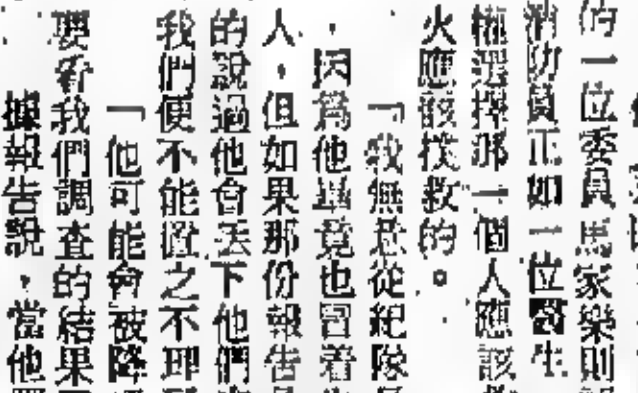 的一位委員馬家樂則
消防員正如一位醫生
權選擇那一個人應該
火應該撲救的。
「我無意從紀隊
,因為他畢竟也冒着
人,但如果那份報告
的說過他會丟下他們
我們便不能置之不理
「他可能會被降
要看我們調查的結果
據報告說,當他